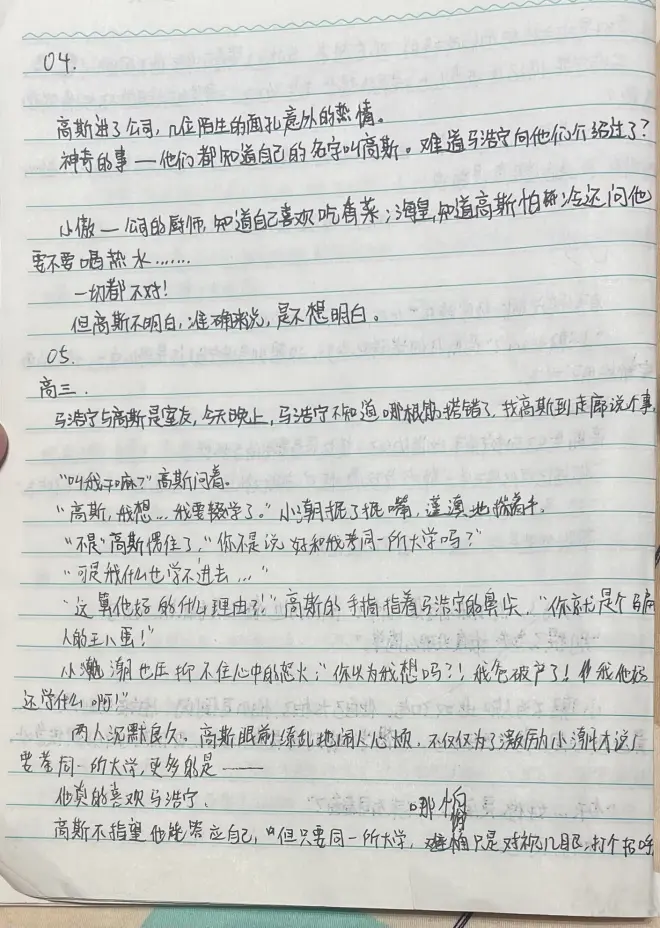 04.
高斯进了公司，几位陌生的面孔意外的热情。
神奇的事—他们都知道自己的名字叫高斯。难道马浩宁向他们介绍过了？
小傲—公司的厨师，知道自己喜欢吃香菜；海皇，知道高斯怕冷还问他
要不要喝热水……
一切都不对！
但高斯不明白，准确来说，是不想明白。
05.
高三.
马浩宁与高斯是室友，今天晚上，马浩宁不知道哪根筋搭错了，找高斯到走廊说个事，
“叫我干嘛？”高斯问着。
“高斯，我想…我要辍学了。”小潮抿了抿嘴，地揣着手。
“不是”高斯愣住了，“你不是说好和我考同一所大学吗？”
“可是我什么也学不进去…”
“这算他妈的什么理由？！”高斯的手指指着马浩宁的鼻尖，“你就是个骗
人的王八蛋！”
小潮也压抑不住心中的怒火；“你以为我想吗？！我爸破产了！我他妈
还学什么啊！”
两人沉默良久。高斯眼前缭乱地闹人心烦，不仅仅为了激励小潮才说了
要考同一所大学，更多的是——
他真的喜欢马浩宁.
高斯不指望他能答应自己，但只要同一所大学，哪怕只是对视几眼，打个招呼